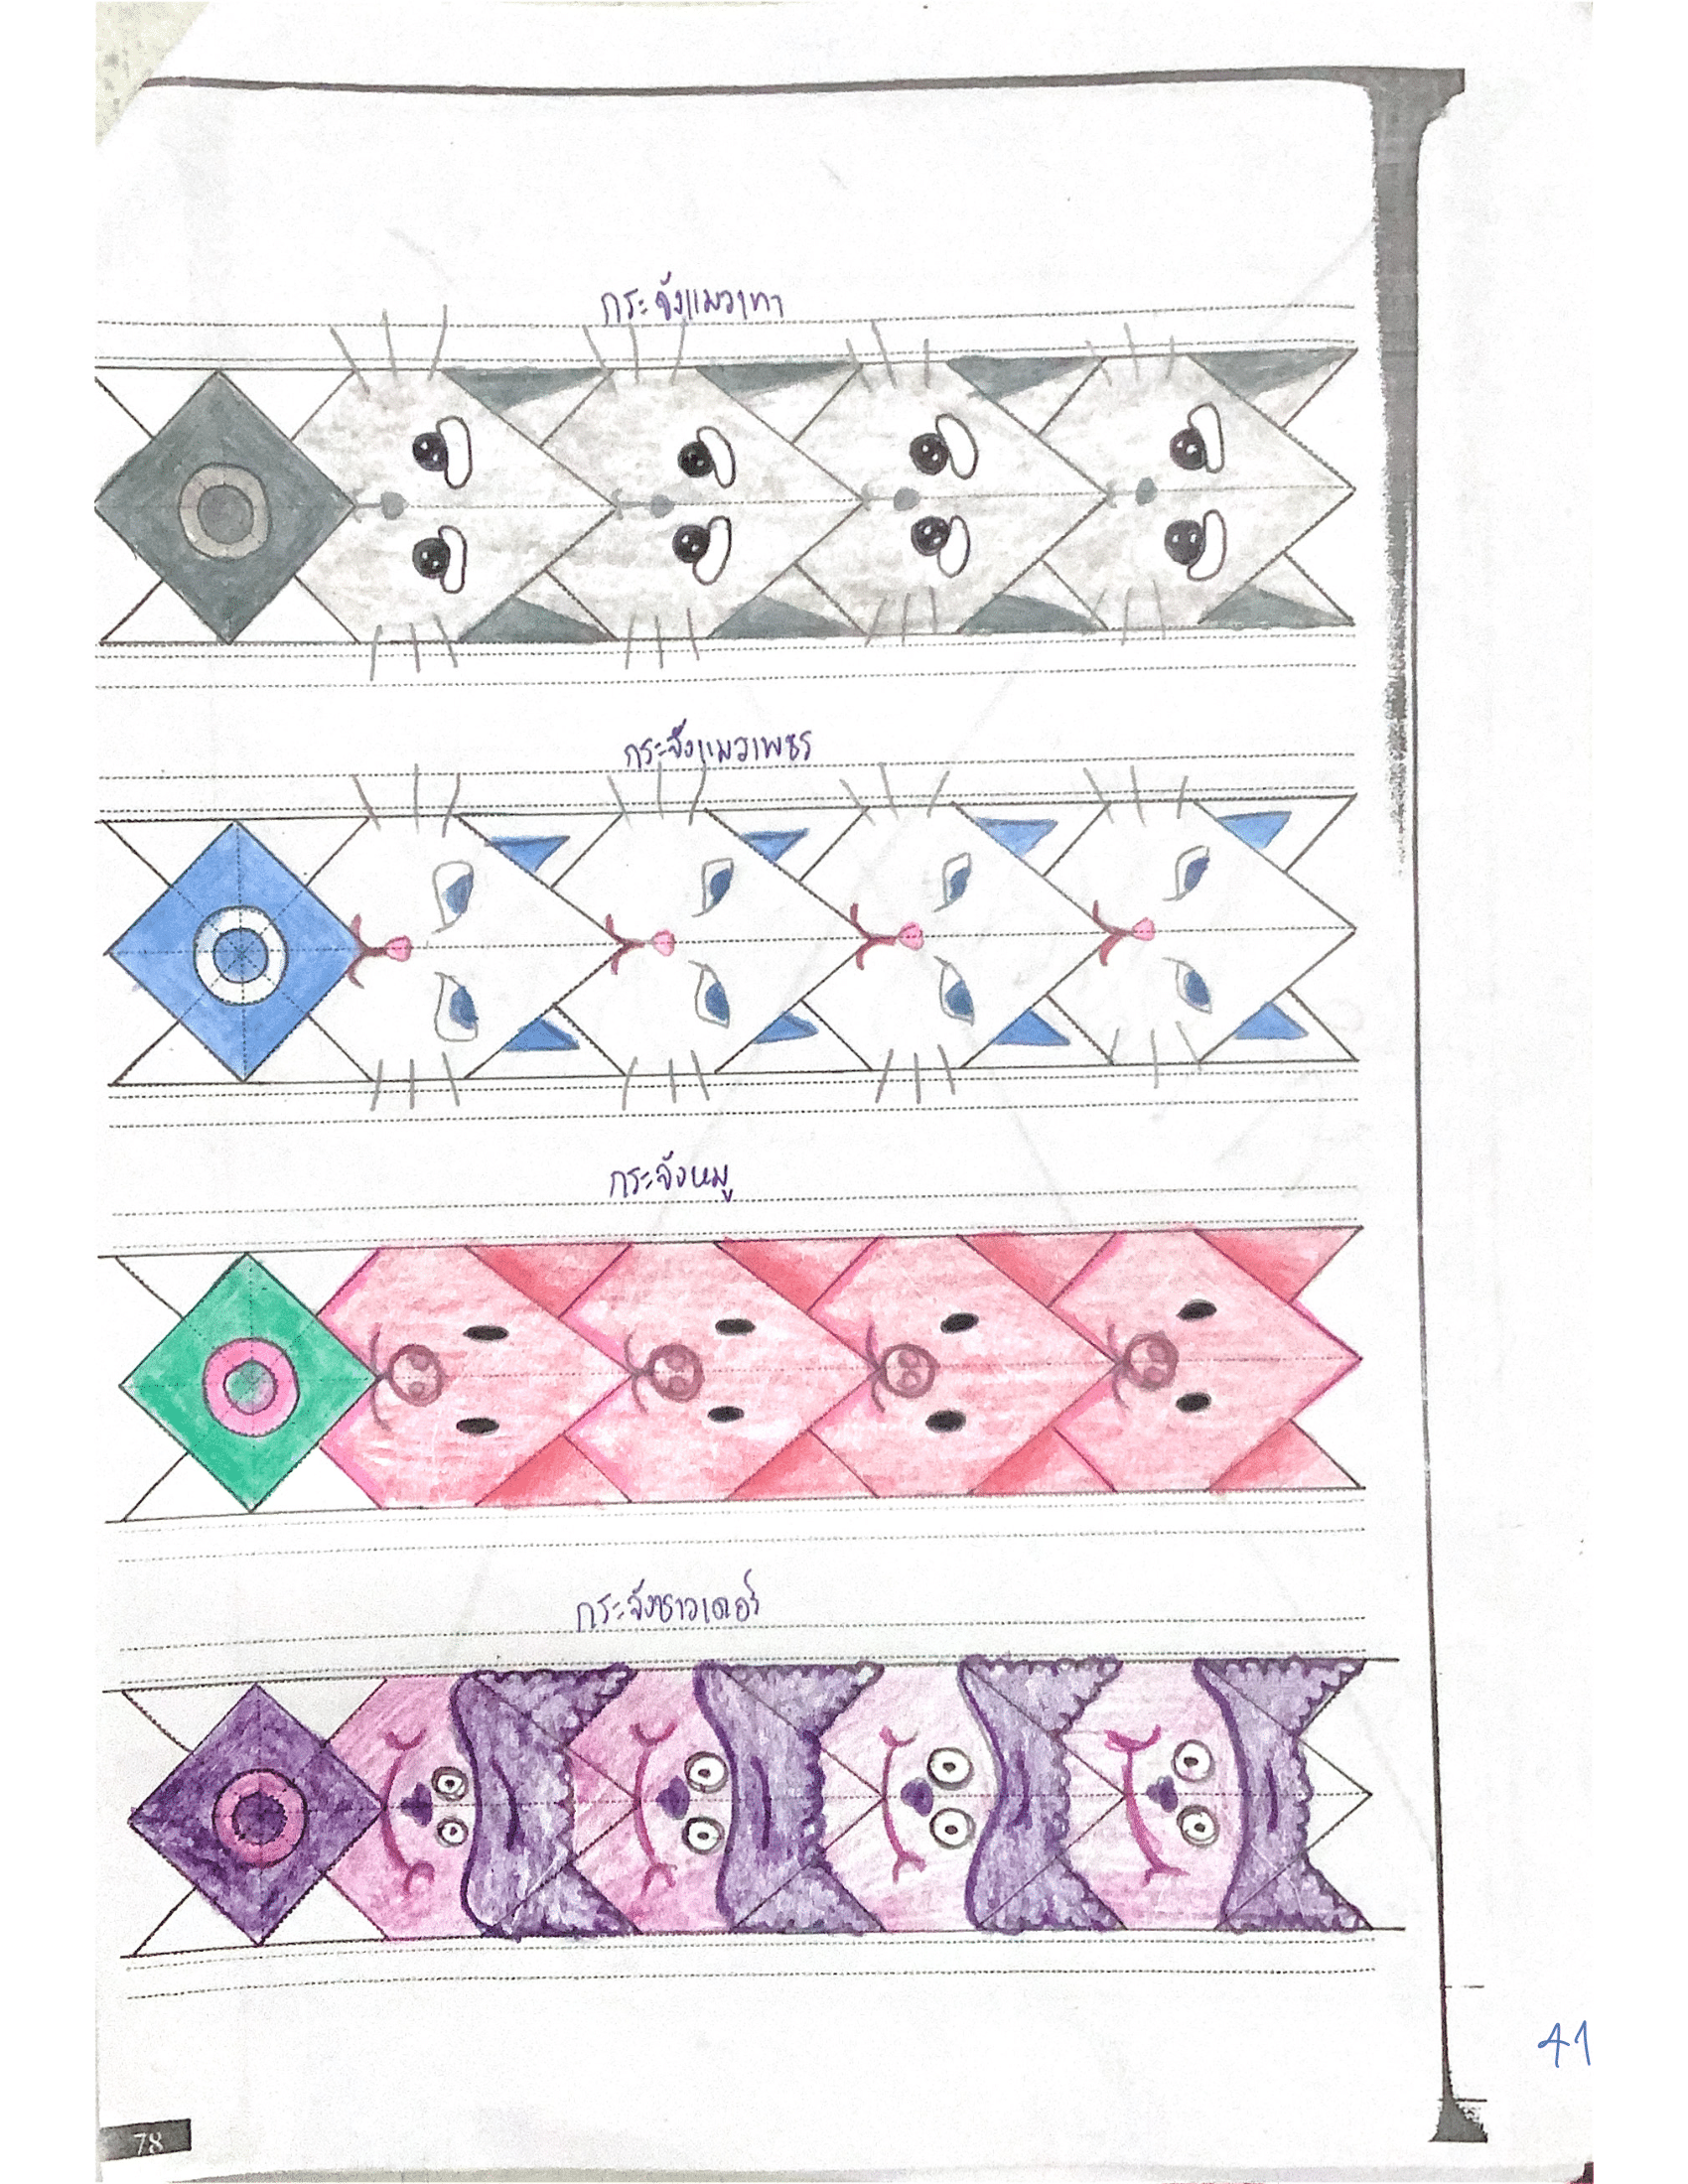 กระจังแมวเทา
กระจังแมวเพชร
กระจังหมู
กระจังชาวเดอร์
41
78